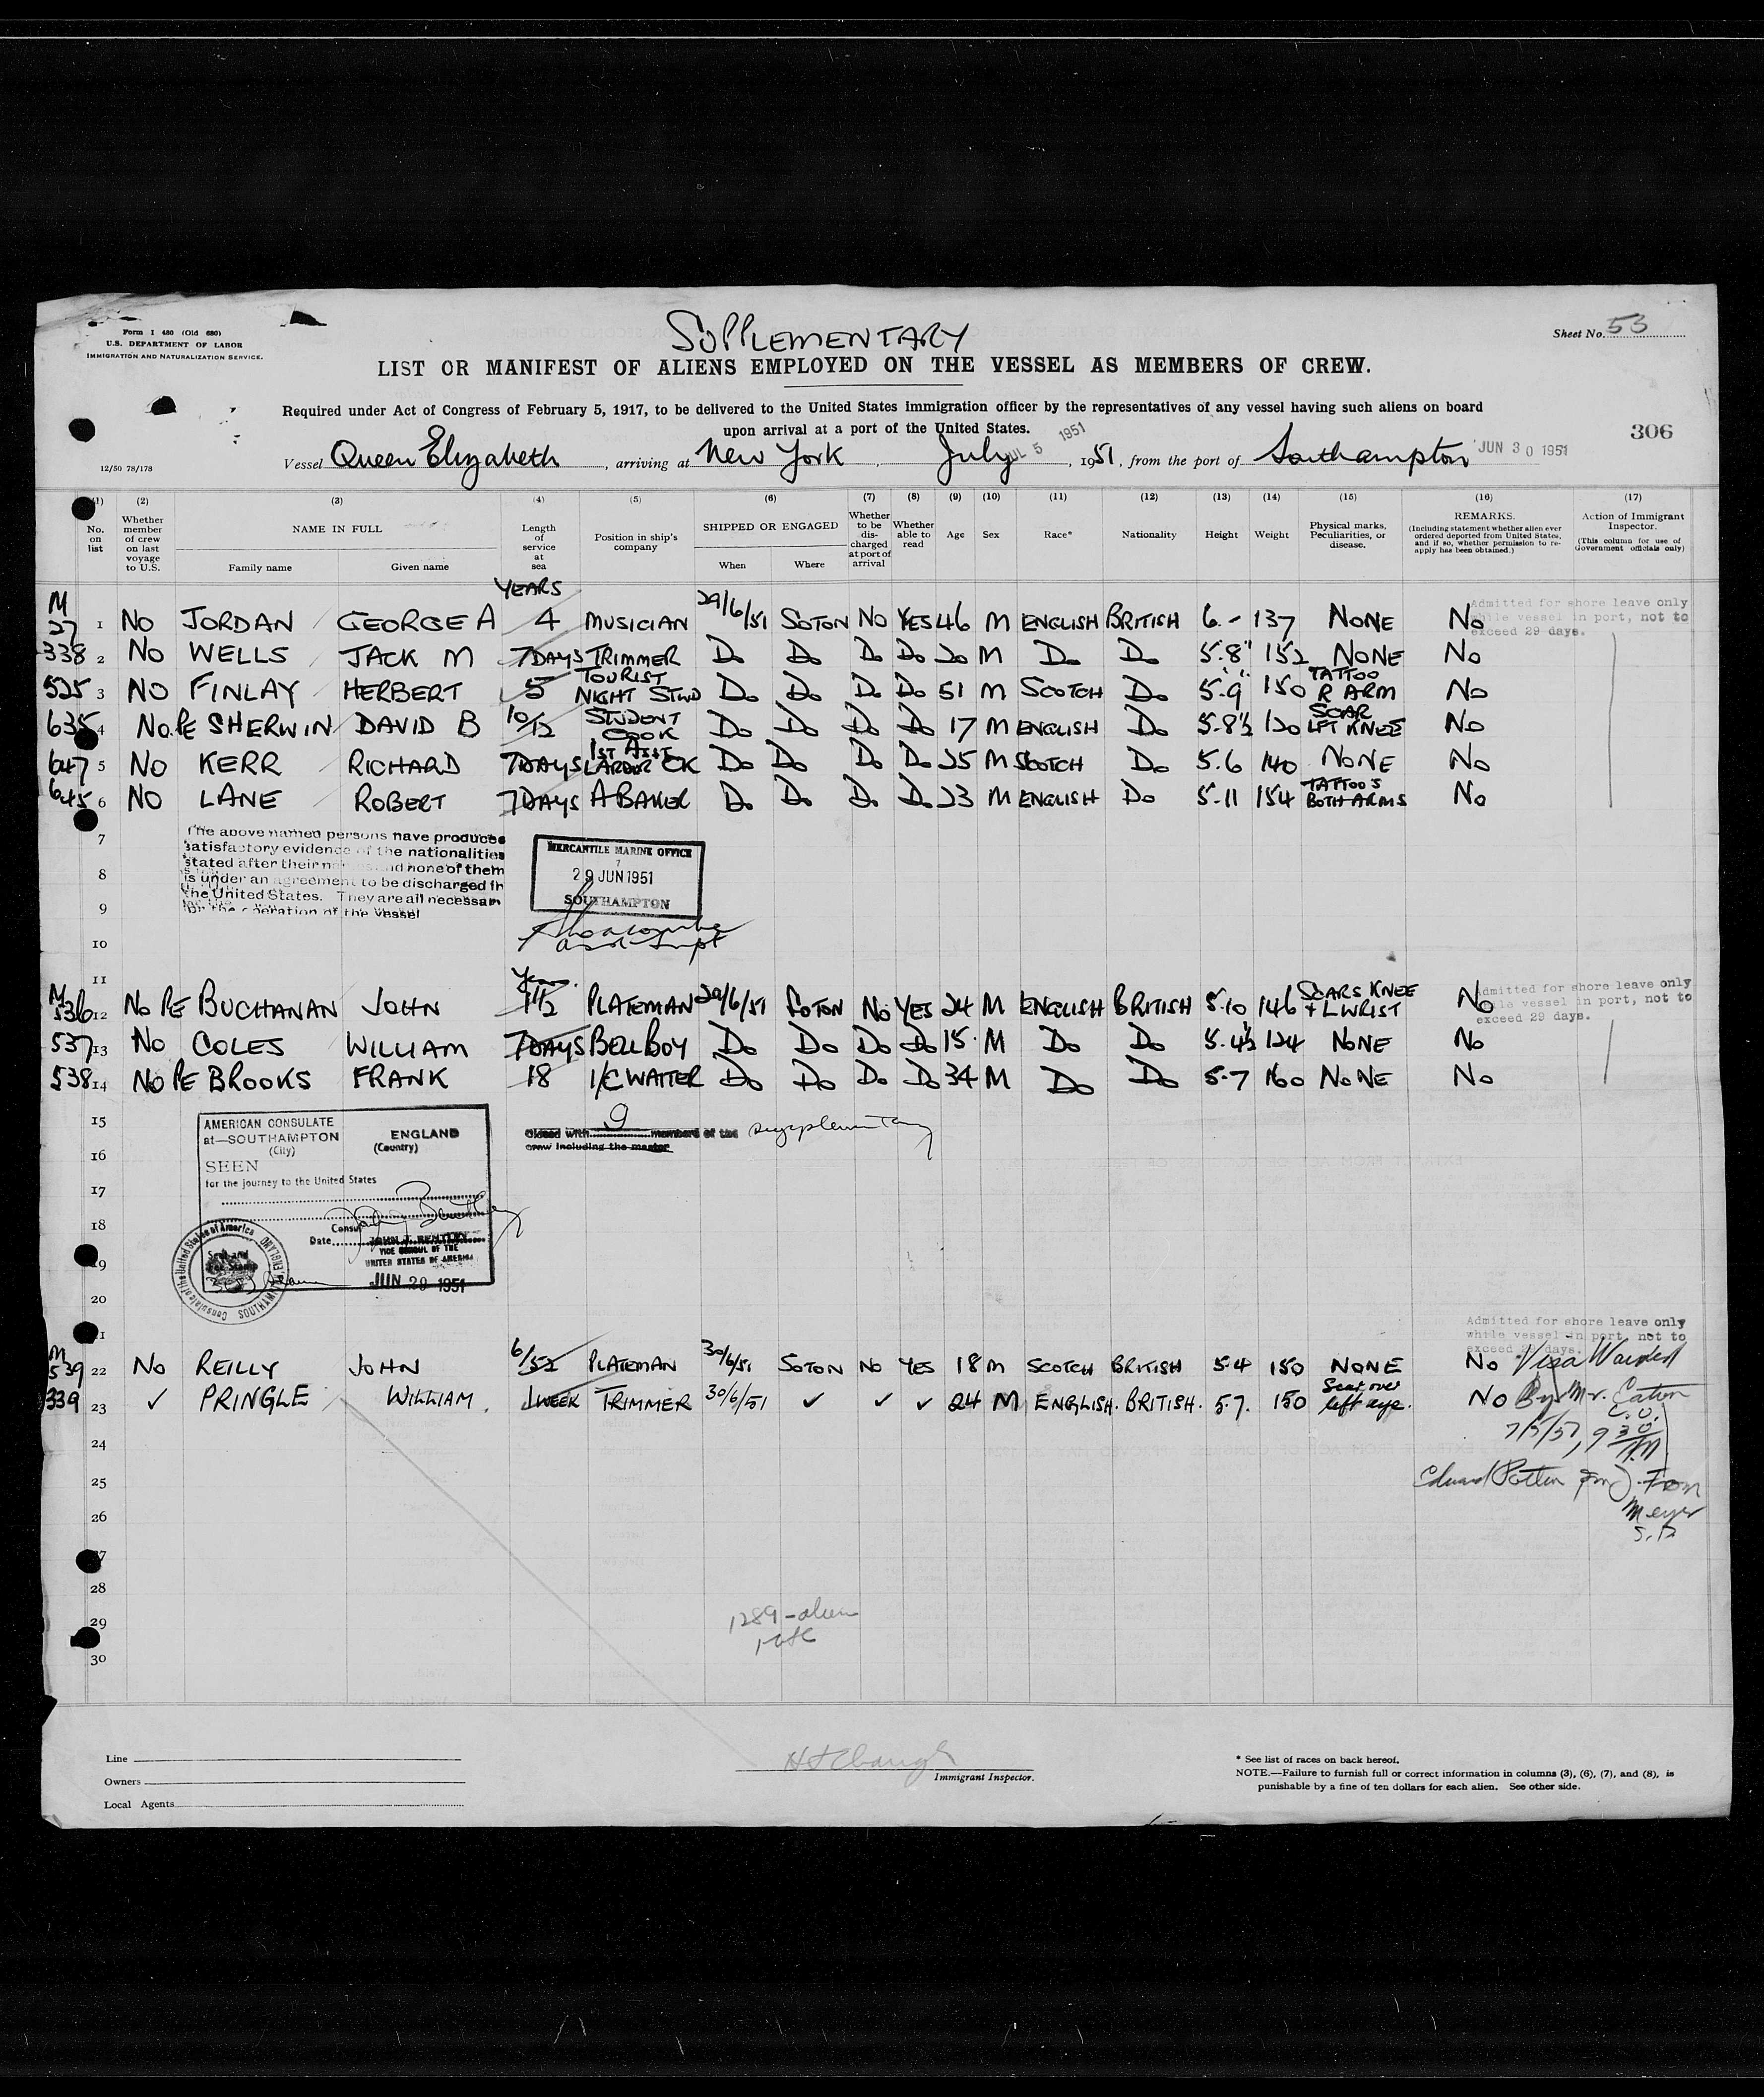 Form I 480 (Old 680)
U.S. DEPARTMENT OF LABOR
IMMIGRATION AND NATURALIZATION SERVICE.
SUPPLEMENTARY
Sheet No. 53
LIST OR MANIFEST OF ALIENS EMPLOYED ON THE VESSEL AS MEMBERS OF CREW.
Required under Act of Congress of February 5, 1917, to be delivered to the United States immigration officer by the representatives of any vessel having such aliens on board
upon arrival at a port of the United States.
306
12/50 78/178
Vessel Queen Elizabeth, arriving at New York, July JUL 5 1951, 1951, from the port of Southampton JUN 30 1951
(1) (2) (3) (4) (5) (6) (7) (8) (9) (10) (11) (12) (13) (14) (15) (16) (17)
No. on list
Whether member of crew on last voyage to U.S.
NAME IN FULL
Family name
Given name
Length of service at sea
Position in ship's company
SHIPPED OR ENGAGED
When
Where
Whether to be discharged at port of arrival
Whether able to read
Age
Sex
Race*
Nationality
Height
Weight
Physical marks, Peculiarities, or disease.
REMARKS.
(Including statement whether alien ever ordered deported from United States, and if so, whether permission to reapply has been obtained.)
Action of Immigrant Inspector.
(This column for use of Government officials only)
YEARS
M 27 1 NO JORDAN GEORGE A 4 MUSICIAN 29/6/51 SOTON NO YES 46 M ENGLISH BRITISH 6.- 137 NONE No
Admitted for shore leave only
while vessel in port, not to
exceed 29 days.
338 2 NO WELLS JACK M 7 DAYS TRIMMER Do Do Do Do 20 M Do Do 5.8" 152 NONE No
525 3 NO FINLAY HERBERT 5 TOURIST NIGHT STWD Do Do Do Do 51 M SCOTCH Do 5.9" 150 TATTOO R ARM No
635 4 No.PE SHERWIN DAVID B 10/12 STUDENT COOK Do Do Do Do 17 M ENGLISH Do 5-8½ 120 SCAR LFT KNEE No
647 5 NO KERR RICHARD 7 DAYS 1ST ASST LARDER CK Do Do Do Do 25 M SCOTCH Do 5.6 140 NONE No
645 6 NO LANE ROBERT 7 DAYS A BAKER Do Do Do Do 23 M ENGLISH Do 5-11 154 TATTOO'S BOTH ARMS No
7
8
9
10
11
The above named persons have produced
satisfactory evidence of the nationalities
stated after their names and none of them
is under an agreement to be discharged in
the United States. They are all necessary
for the operation of the Vessel
MERCANTILE MARINE OFFICE
7
29 JUN 1951
SOUTHAMPTON
M 536 12 No PE BUCHANAN JOHN 1½ PLATEMAN 29/6/51 SOTON NO YES 24 M ENGLISH BRITISH 5.10 146 SCARS KNEE + L WRIST No
Admitted for shore leave only
while vessel in port, not to
exceed 29 days.
537 13 NO COLES WILLIAM 7 DAYS BELL BOY Do Do Do Do 15 M Do Do 5.4½ 124 NONE No
538 14 NO PE BROOKS FRANK 18 1/C WAITER Do Do Do Do 34 M Do Do 5-7 160 NONE No
15
16
17
18
19
20
21
AMERICAN CONSULATE
at—SOUTHAMPTON ENGLAND
(City) (Country)
SEEN
for the journey to the United States
Consul
Date
JOHN J. BENTLEY
VICE CONSUL OF THE
UNITED STATES OF AMERICA
JUN 29 1951
Consulate of the United States of America SOUTHAMPTON ENGLAND
Closed with 9 members of the supplementary
crew including the master
Admitted for shore leave only
while vessel in port, not to
exceed 29 days.
M 539 22 No REILLY JOHN 6/52 PLATEMAN 30/6/51 SOTON NO YES 18 M SCOTCH BRITISH 5.4 150 NONE No Visa Waived
339 23 ✓ PRINGLE WILLIAM. 1 WEEK TRIMMER 30/6/51 ✓ ✓ ✓ 24 M ENGLISH. BRITISH. 5.7. 150 Scar over left eye. NO By Mr. Eaton
7/5/51, 9 30
24
25
26
27
28
29
30
Meyer
1289-alien
Line
Owners
Local Agents
Immigrant Inspector.
* See list of races on back hereof.
NOTE.—Failure to furnish full or correct information in columns (3), (6), (7), and (8), is
punishable by a fine of ten dollars for each alien. See other side.